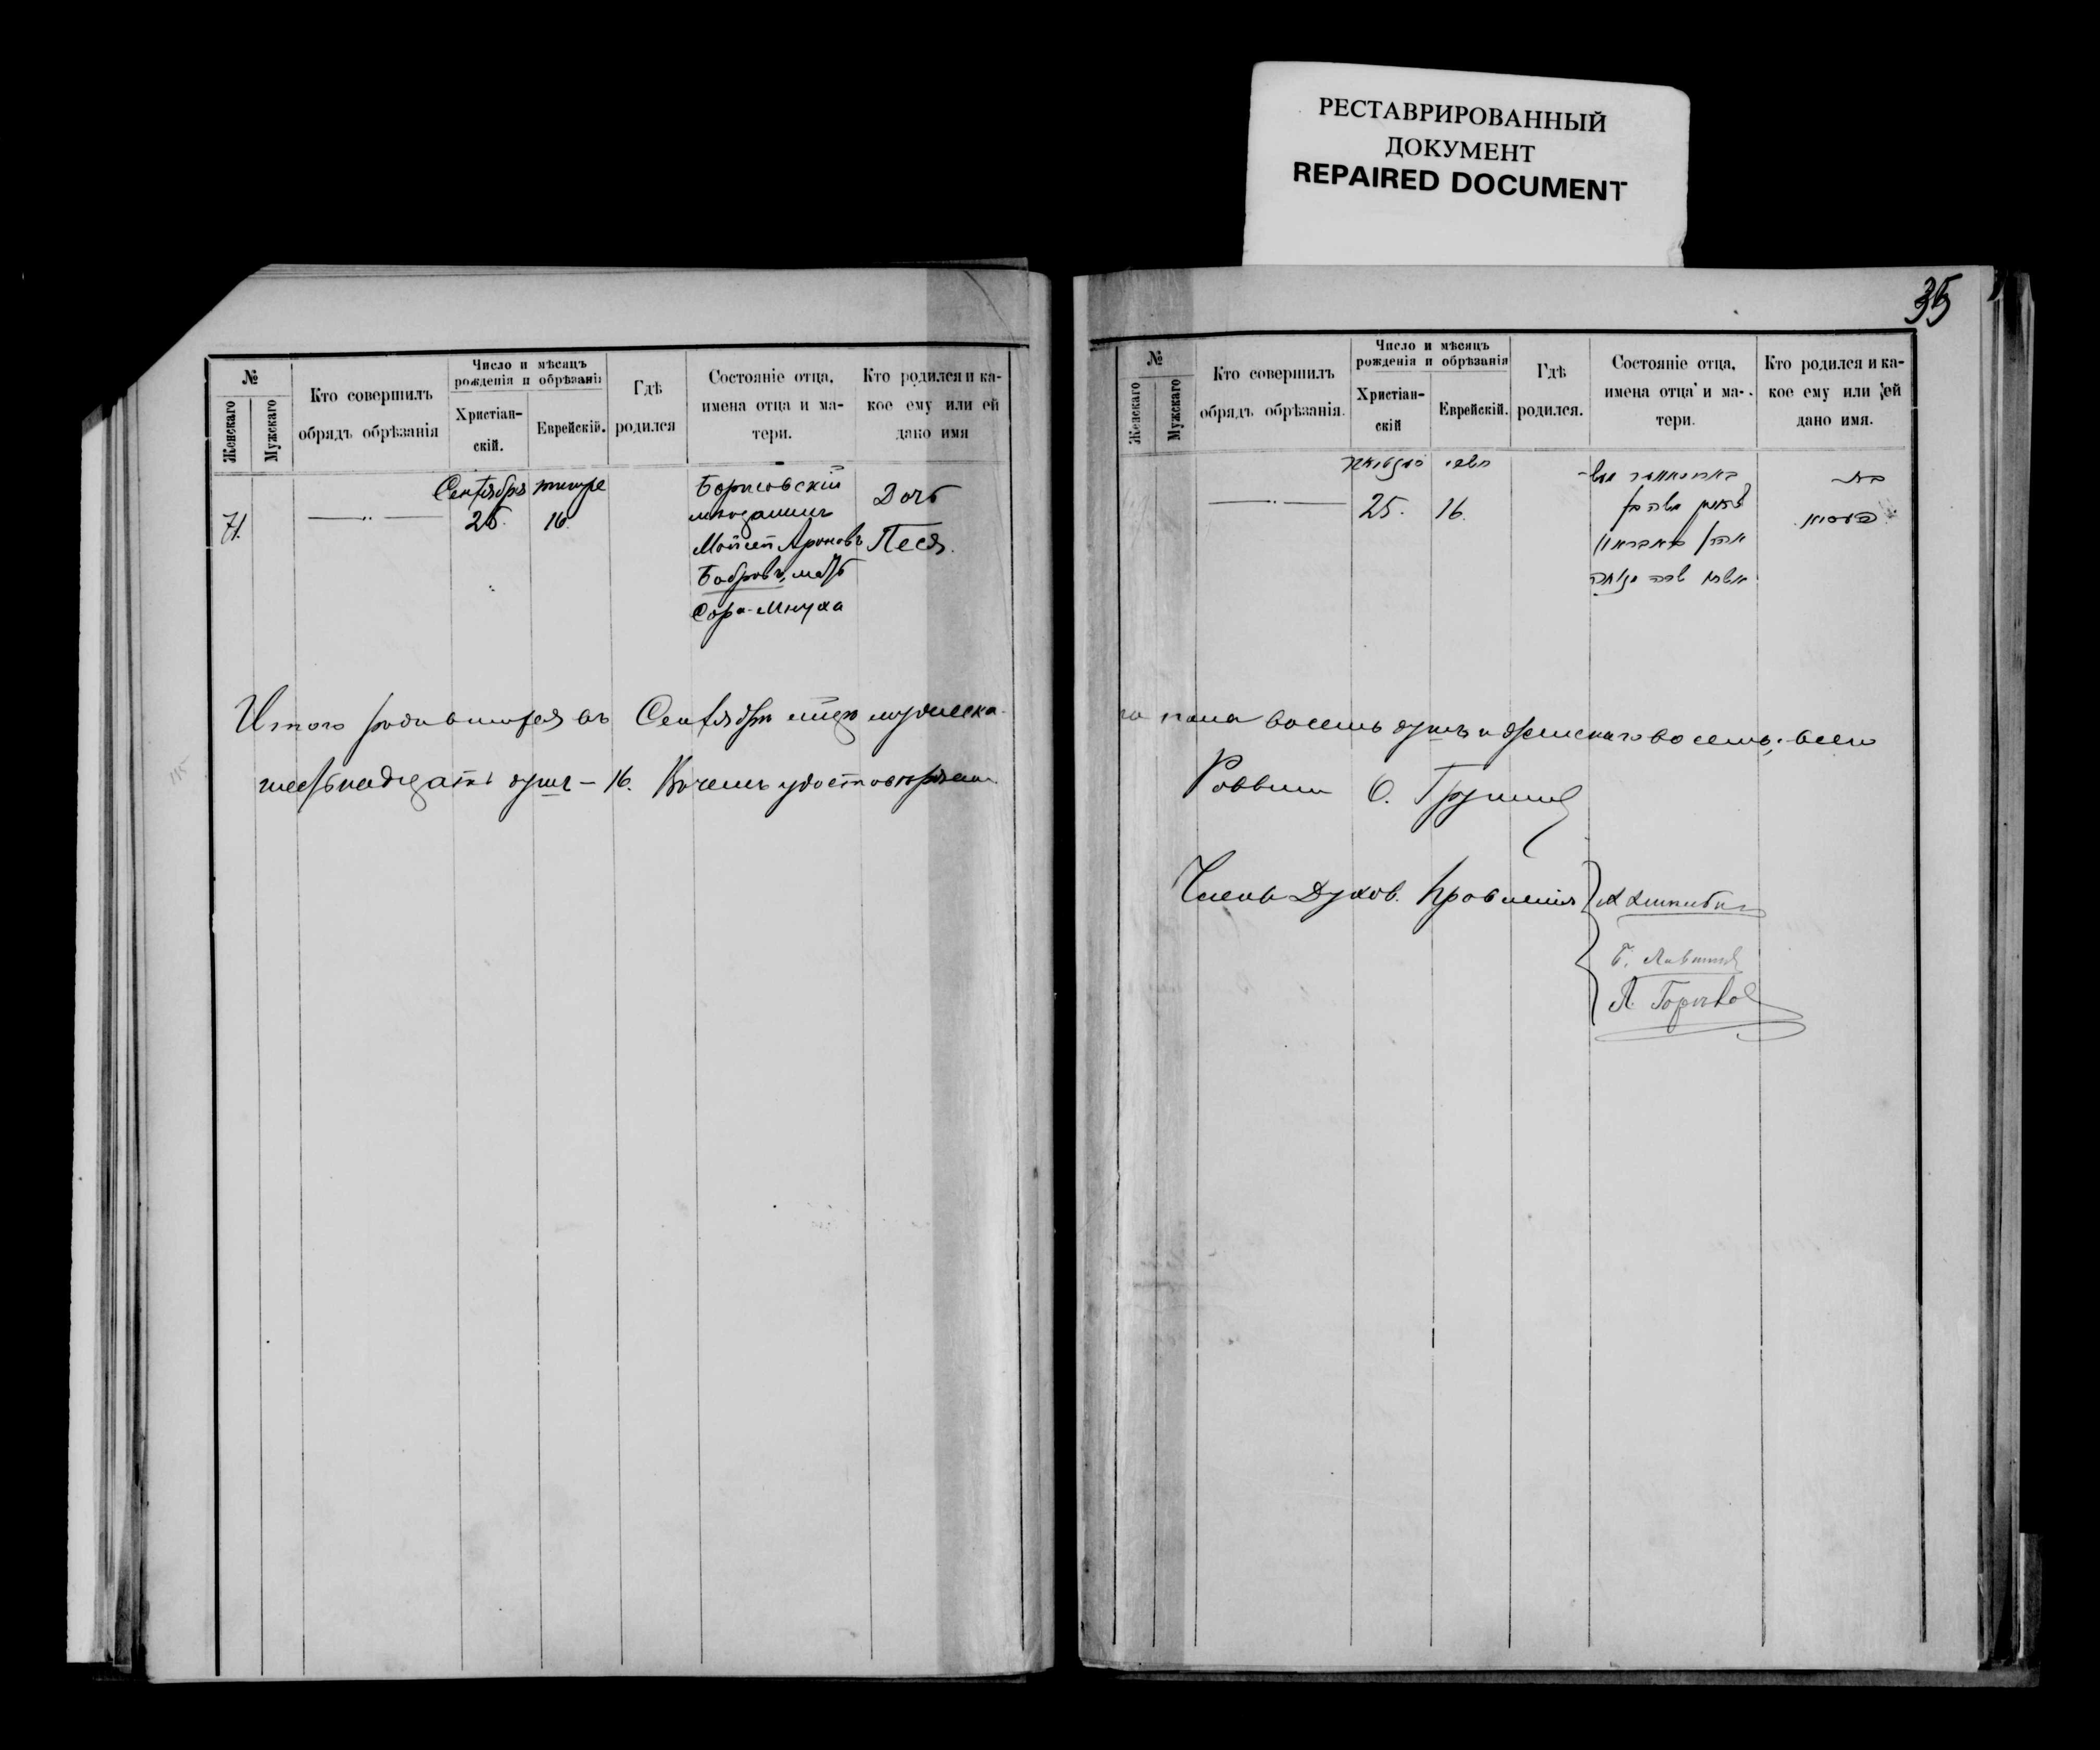 РЕСТАВРИРОВАННЫЙ
ДОКУМЕНТ
REPAIRED DOCUMENT
№
Женскаго
Мужскаго
Кто совершилъ
обрядъ обрѣзанія
Число и мѣсяцъ
рожденія и обрѣзані
Христіан-
скій.
Еврейскій.
Гдѣ
родился
Состояніе отца,
имена отца и ма-
тери.
Кто родился и ка-
кое ему или ей
дано имя
71.
Сентября
25.
тишре
16.
Борисовскій
мѣщанинъ
Мойсей Ароновъ
Бобровъ, мать
Сора-Мнуха
Дочь
Песя.
Итого родившихся въ Сентябрѣ мцѣ мужеска-
шестьнадцать душъ – 16. Въ чемъ удостовѣряемъ
35
№
Женскаго
Мужскаго
Кто совершилъ
обрядъ обрѣзанія.
Число и мѣсяцъ
рожденія и обрѣзанія
Христіан-
скій
Еврейскій.
Гдѣ
родился.
Состояніе отца,
имена отца и ма-
тери.
Кто родился и ка-
кое ему или ей
дано имя.
25.
תשרי
16.
משה בן
אהרן
שרה
בת
го пола восемь душъ и женскаго восемь; всего
Раввинъ
Члены Духов. Правленія